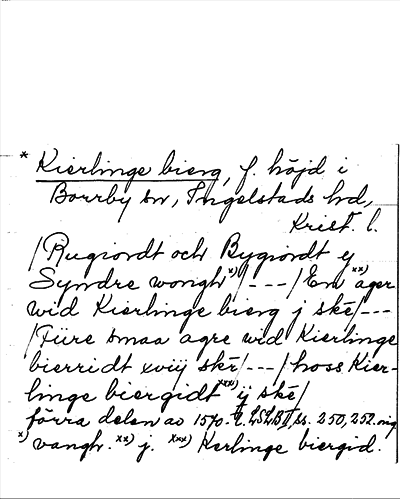 * Kierlinge bierg, f. höjd i
Borrby sn, Ingelstads hd,
Krist. l.
/Rugiordt och Bygiordt ij
Syndre wongh x)/---/En xx) ager
wid Kierlinge bierg j skē/---
/Fiire smaa agre wid Kierlinge
bierridt xviij skē/---/hoss Kier-
linge biergidt xxx) ij skē/
förra delen av 1570-t. LSLB II, ss. 250, 252. mg
x) vangh. xx) j. xxx) Kerlinge biergid.